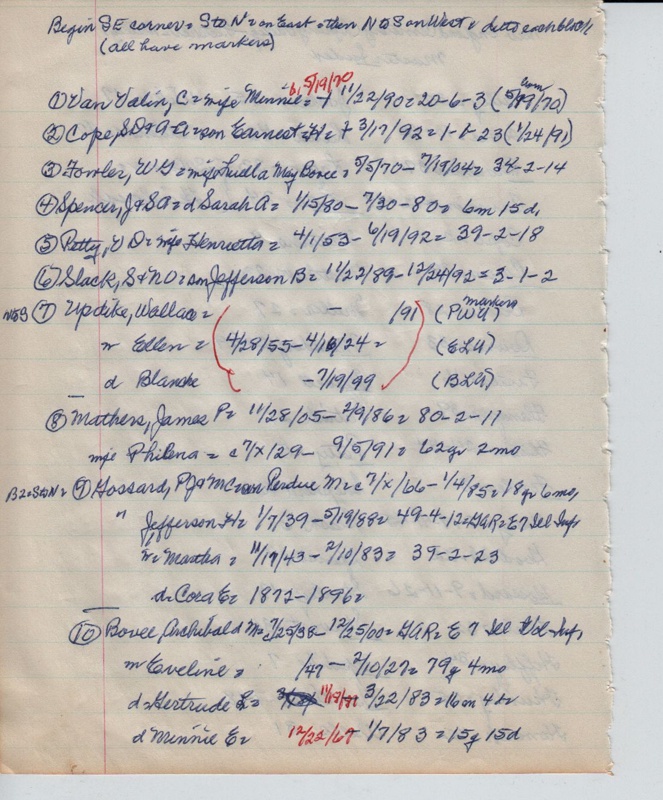 Begin SE corner = S to N = on East then N to S on West & ditto each block
(all have markers)
b, 5/19/70
① Van Valin, C = wife Minnie = + 11/22/90 = 20-6-3 (5/19/70) com
② Cope, SD & A A = son Earnest H = + 3/17/92 = 1-1-23 (1/24/91)
③ Fowler, W G = wife Luella May Bovee = 5/5/70 - 7/19/04 = 34-2-14
④ Spencer, J & SA = d Sarah A = 1/15/80 - 7/30-80 = 6m 15d,
⑤ Petty, V D = wife Henrietta = 4/1/53 - 6/19/92 = 39-2-18
⑥ Slack, S & NO = son Jefferson B = 11/22/89 - 12/24/92 = 3-1-2
N & S ⑦ Updike, Wallace = - /91 (PWU) markers
w Ellen = 4/28/55 - 4/16/24 = (ELU)
d Blanche - 7/19/99 (BLU)
⑧ Mathers, James P = 11/28/05 - 2/9/86 = 80-2-11
wife Philena = c 7/x/29 - 9/5/91 = 62yr 2mo
B2 = S to N = ⑨ Gossard, PJ & MC = son Perdue M = c 7/x/66 - 1/4/85 = 18yr 6mo,
" Jefferson H = 1/7/39 - 5/19/88 = 49-4-12 = GAR = E 7 Ill Inf,
w = Martha = 11/17/43 - 2/10/83 = 39-2-23
d = Cora E = 1872-1896 =
⑩ Bovee, Archibald M = 7/25/38 - 12/25/00 = GAR = E 7 Ill Vol-Inf,
w Eveline = /47 - 2/10/27 = 79y 4mo
d = Gertrude L = 3/22/83 = 16m 4d
d Minnie E = 12/22/67 - 1/7/83 = 15y 15d